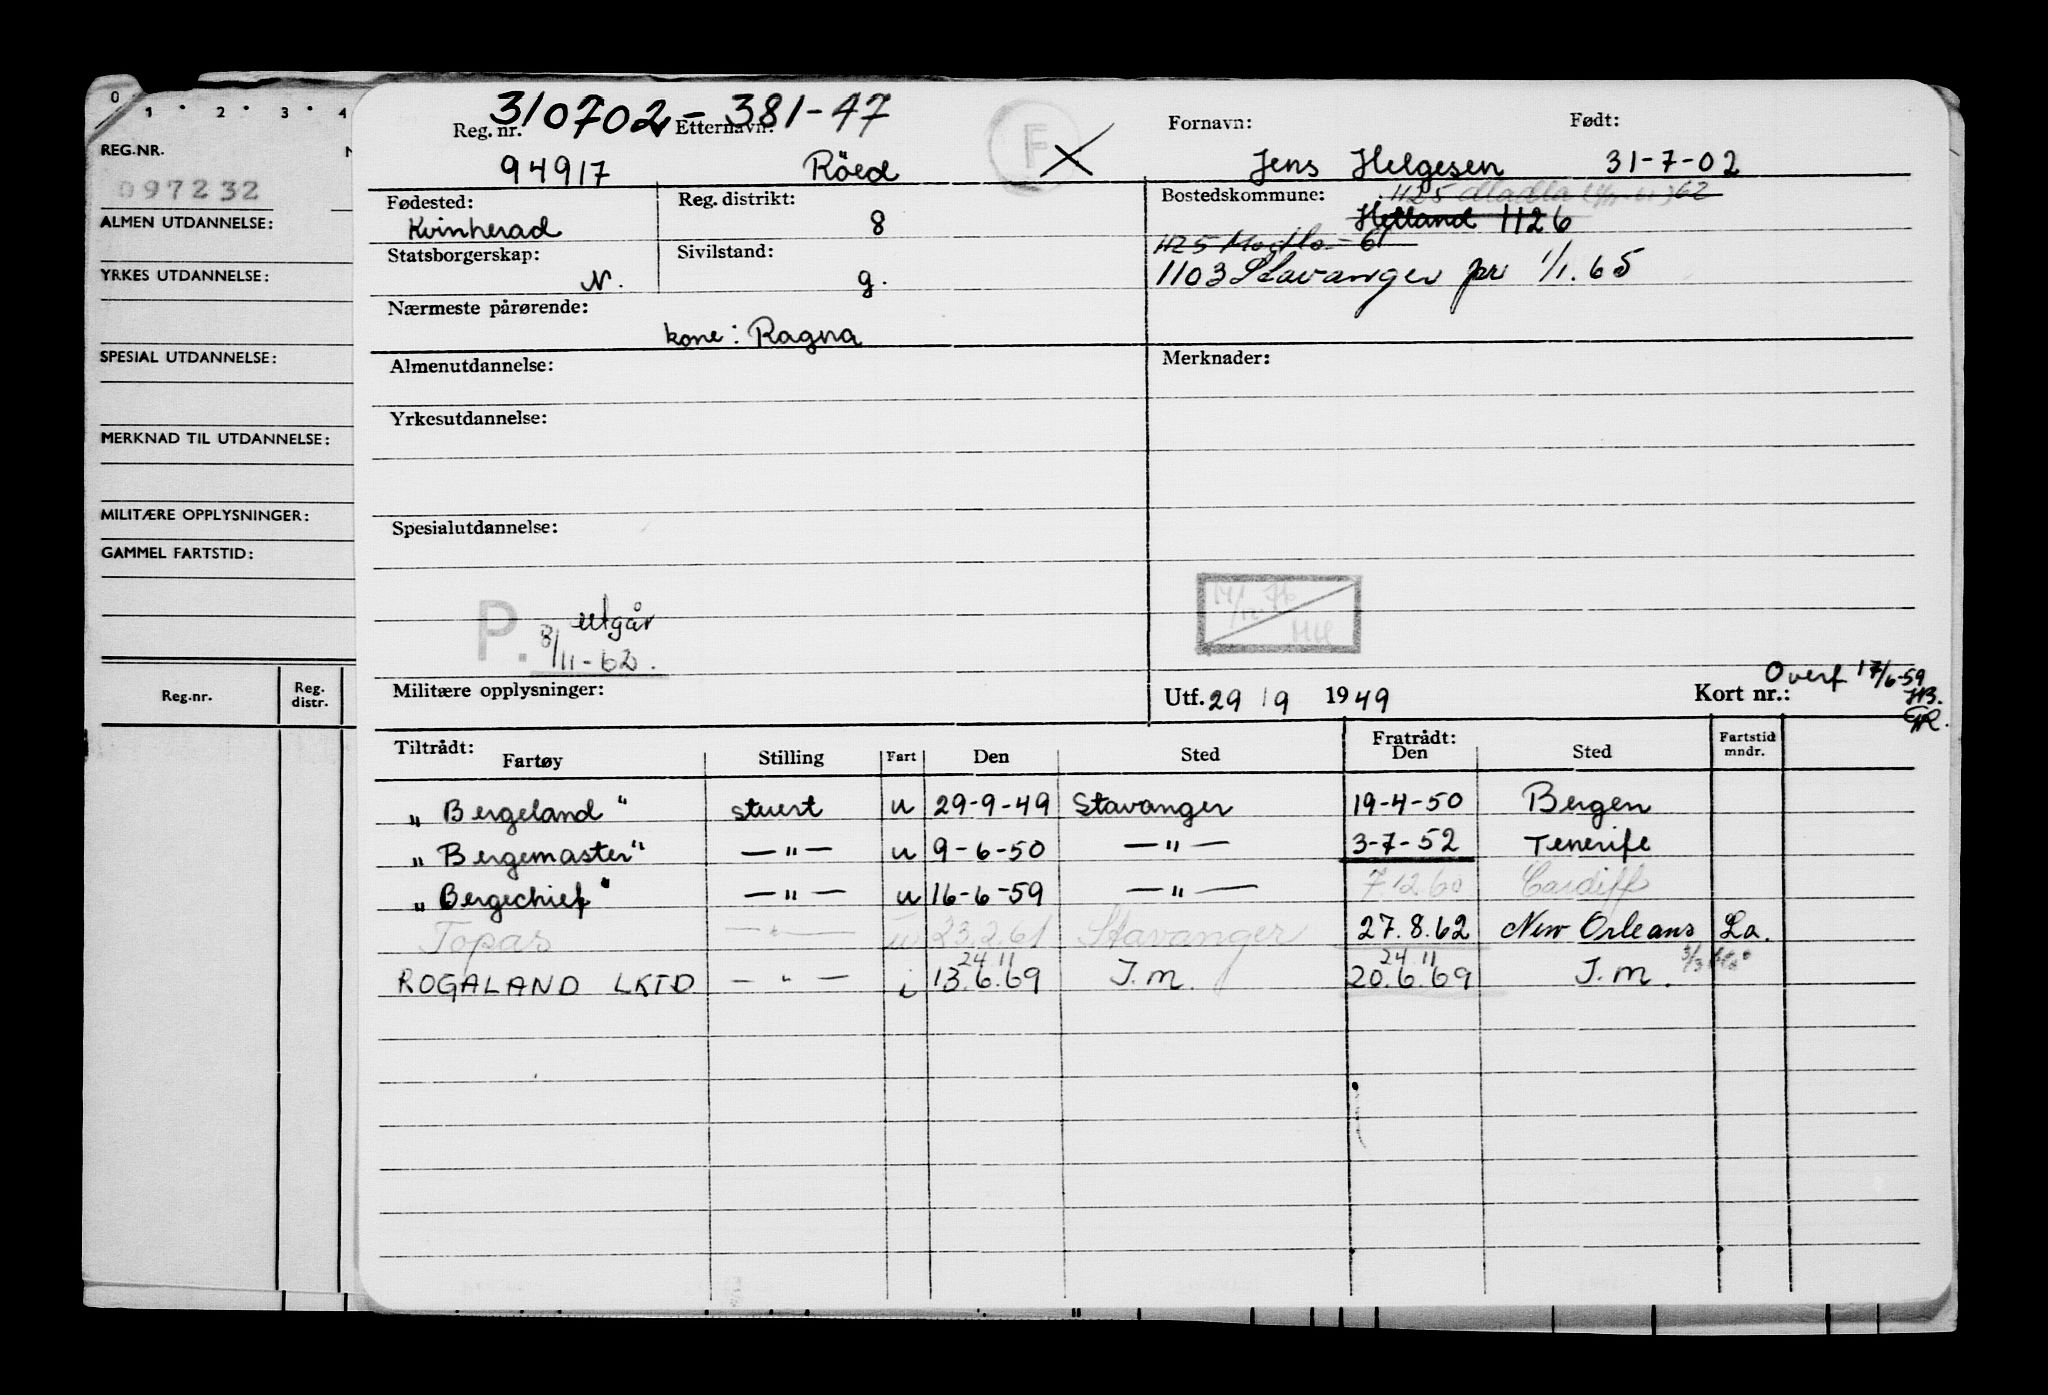 0 1 2 3 4
REG.NR.
097232
ALMEN UTDANNELSE:
YRKES UTDANNELSE:
SPESIAL UTDANNELSE:
MERKNAD TIL UTDANNELSE:
MILITÆRE OPPLYSNINGER:
GAMMEL FARTSTID:
Reg.nr. Reg. distr.
310702-381-47
Reg. nr. Etternavn: F Fornavn: Født:
94917 Röed X Jens Helgesen 31-7-02
Fødested: Reg. distrikt: Bostedskommune: 1125 Madla 62
Kvinherad 8 Hetland 1126
1125 Madla - 61
Statsborgerskap: Sivilstand:
N. g. 1103 Stavanger pr 1/1. 65
Nærmeste pårørende:
kone: Ragna
Almenutdannelse: Merknader:
Yrkesutdannelse:
Spesialutdannelse:
P. utgår
8/11-62.
Militære opplysninger: Utf. 29/9 1949 Kort nr.: Overf 17/6-59
HB.
Tiltrådt: Fratrådt:
Fartøy Stilling Fart Den Sted Den Sted Fartstid mndr.
"Bergeland" stuert u 29-9-49 Stavanger 19-4-50 Bergen
"Bergemaster" —"— u 9-6-50 —"— 3-7-52 Tenerife
"Bergechief" —"— u 16-6-59 —"— 7.12.60 Cardiff
Topas —"— u 23.2.61 Stavanger 27.8.62 New Orleans La.
24 11 24 11
ROGALAND LKTD —"— i 13.6.69 J.m. 20.6.69 J.m.